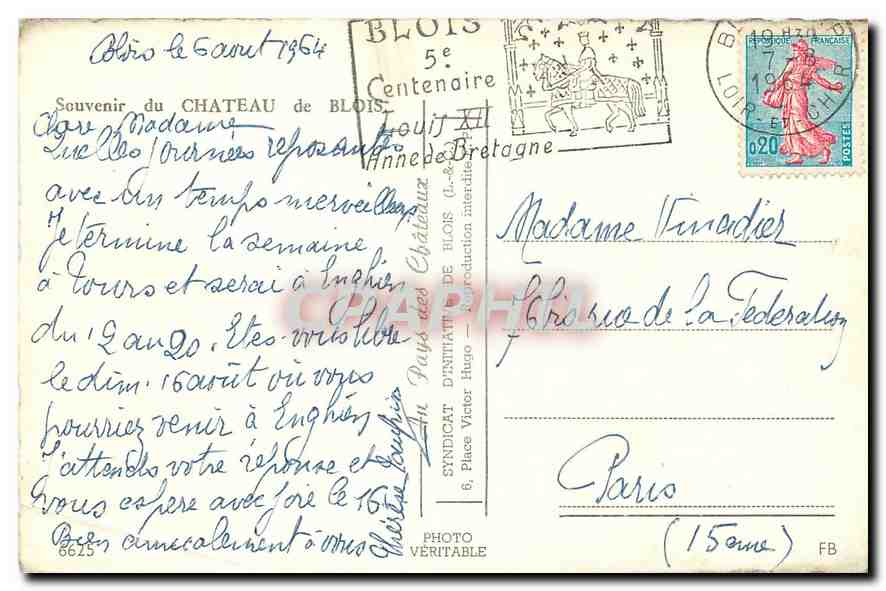 Blois le 6 aout 1964
Souvenir du CHATEAU de BLOIS
Chère Madame
Quelles journées reposantes
avec un temps merveilleux
Je termine la semaine
à Tours et serai à Enghien
du 12 au 20. Etes-vous libre
le dim. 16 août où vous
pourriez venir à Enghien
J'attends votre réponse et
vous espère avec joie le 16
Bien amicalement à vous
Thérèse
6625
BLOIS
5e
Centenaire
Louis XII
Anne de Bretagne
Au Pays des Châteaux
SYNDICAT D'INITIATIVE DE BLOIS (L.-&-C.)
6, Place Victor Hugo — Reproduction interdite
PHOTO
VÉRITABLE
CPAPHIL
19 H30
7 - 8
1964
LOIR-ET-CHER
REPUBLIQUE FRANÇAISE
0,20
POSTES
Madame Vinadier
7bis rue de la Fédération
Paris
(15eme)
FB